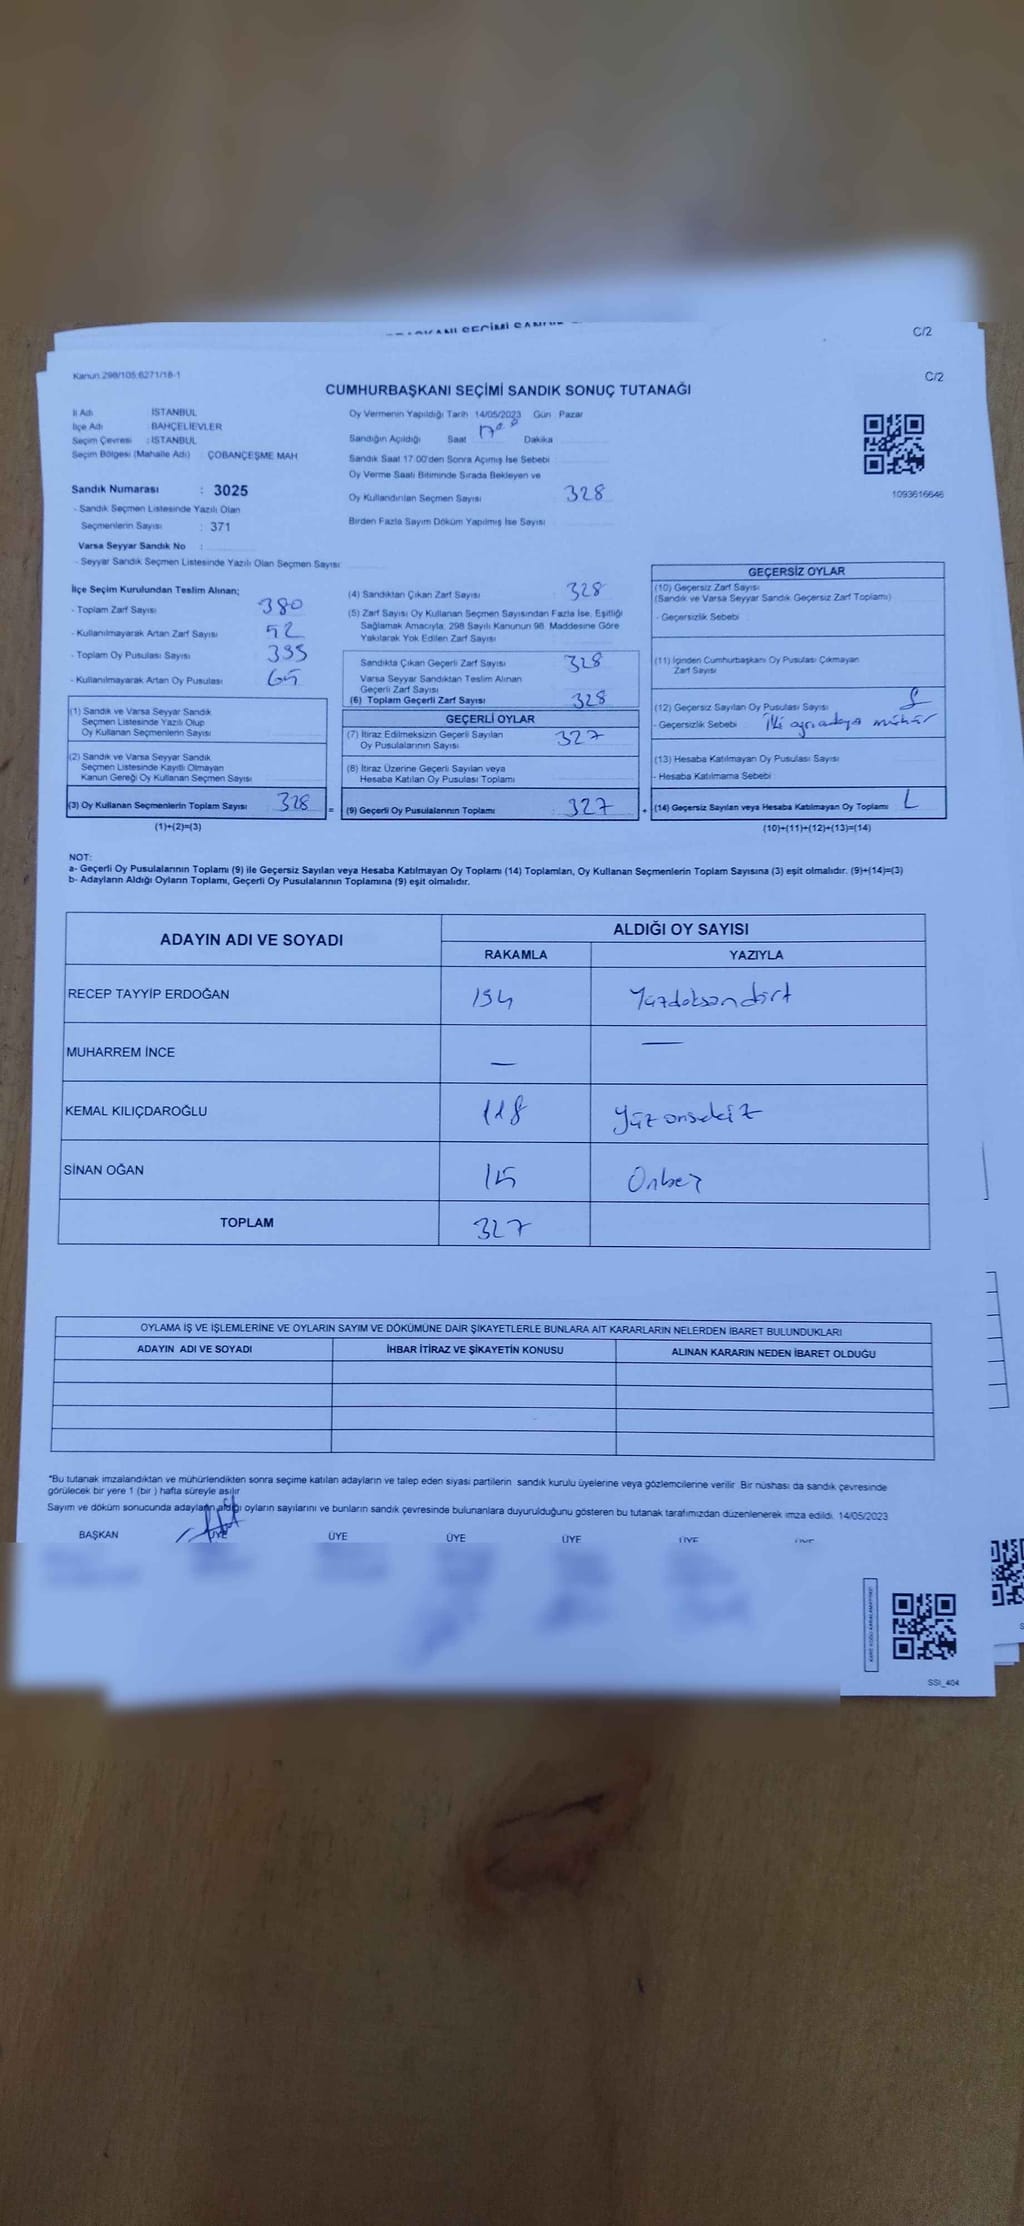 C/2
Kanun 298/105;6271/18-1
C/2
CUMHURBAŞKANI SEÇİMİ SANDIK SONUÇ TUTANAĞI
İl Adı : İSTANBUL
İlçe Adı : BAHÇELİEVLER
Seçim Çevresi : İSTANBUL
Seçim Bölgesi (Mahalle Adı) : ÇOBANÇEŞME MAH
Sandık Numarası : 3025
- Sandık Seçmen Listesinde Yazılı Olan
Seçmenlerin Sayısı : 371
Varsa Seyyar Sandık No :
- Seyyar Sandık Seçmen Listesinde Yazılı Olan Seçmen Sayısı
Oy Vermenin Yapıldığı Tarih : 14/05/2023 Gün : Pazar
Sandığın Açıldığı Saat 17.00 Dakika
Sandık Saat 17:00'den Sonra Açımış İse Sebebi
Oy Verme Saati Bitiminde Sırada Bekleyen ve
Oy Kullandırılan Seçmen Sayısı 328
Birden Fazla Sayım Döküm Yapılmış İse Sayısı
1093616646
İlçe Seçim Kurulundan Teslim Alınan;
- Toplam Zarf Sayısı 380
- Kullanılmayarak Artan Zarf Sayısı 52
- Toplam Oy Pusulası Sayısı
- Kullanılmayarak Artan Oy Pusulası 65
(1) Sandık ve Varsa Seyyar Sandık
Seçmen Listesinde Yazılı Olup
Oy Kullanan Seçmenlerin Sayısı
(2) Sandık ve Varsa Seyyar Sandık
Seçmen Listesinde Kayıtlı Olmayan
Kanun Gereği Oy Kullanan Seçmen Sayısı
(3) Oy Kullanan Seçmenlerin Toplam Sayısı 328 =
(1)+(2)=(3)
(4) Sandıktan Çıkan Zarf Sayısı 328
(5) Zarf Sayısı Oy Kullanan Seçmen Sayısından Fazla İse, Eşitliği
Sağlamak Amacıyla; 298 Sayılı Kanunun 98. Maddesine Göre
Yakılarak Yok Edilen Zarf Sayısı
Sandıkta Çıkan Geçerli Zarf Sayısı 328
Varsa Seyyar Sandıktan Teslim Alınan
Geçerli Zarf Sayısı
(6) Toplam Geçerli Zarf Sayısı 328
GEÇERLİ OYLAR
(7) İtiraz Edilmeksizin Geçerli Sayılan
Oy Pusulalarının Sayısı 327
(8) İtiraz Üzerine Geçerli Sayılan veya
Hesaba Katılan Oy Pusulası Toplamı
(9) Geçerli Oy Pusulalarının Toplamı : 327 +
GEÇERSİZ OYLAR
(10) Geçersiz Zarf Sayısı
(Sandık ve Varsa Seyyar Sandık Geçersiz Zarf Toplamı)
- Geçersizlik Sebebi
(11) İçinden Cumhurbaşkanı Oy Pusulası Çıkmayan
Zarf Sayısı
(12) Geçersiz Sayılan Oy Pusulası Sayısı 1
- Geçersizlik Sebebi : İki ayrı adaya mühür
(13) Hesaba Katılmayan Oy Pusulası Sayısı
- Hesaba Katılmama Sebebi
(14) Geçersiz Sayılan veya Hesaba Katılmayan Oy Toplamı 1
(10)+(11)+(12)+(13)=(14)
NOT:
a- Geçerli Oy Pusulalarının Toplamı (9) ile Geçersiz Sayılan veya Hesaba Katılmayan Oy Toplamı (14) Toplamları, Oy Kullanan Seçmenlerin Toplam Sayısına (3) eşit olmalıdır. (9)+(14)=(3)
b- Adayların Aldığı Oyların Toplamı, Geçerli Oy Pusulalarının Toplamına (9) eşit olmalıdır.
ADAYIN ADI VE SOYADI ALDIĞI OY SAYISI
RAKAMLA YAZIYLA
RECEP TAYYİP ERDOĞAN 194 Yüzdoksandört
MUHARREM İNCE — —
KEMAL KILIÇDAROĞLU 118 Yüzonsekiz
SİNAN OĞAN 15 Onbeş
TOPLAM 327
OYLAMA İŞ VE İŞLEMLERİNE VE OYLARIN SAYIM VE DÖKÜMÜNE DAİR ŞİKAYETLERLE BUNLARA AİT KARARLARIN NELERDEN İBARET BULUNDUKLARI
ADAYIN ADI VE SOYADI İHBAR İTİRAZ VE ŞİKAYETİN KONUSU ALINAN KARARIN NEDEN İBARET OLDUĞU
*Bu tutanak imzalandıktan ve mühürlendikten sonra seçime katılan adayların ve talep eden siyasi partilerin sandık kurulu üyelerine veya gözlemcilerine verilir. Bir nüshası da sandık çevresinde
görülecek bir yere 1 (bir ) hafta süreyle asılır
Sayım ve döküm sonucunda adayların aldığı oyların sayılarını ve bunların sandık çevresinde bulunanlara duyurulduğunu gösteren bu tutanak tarafımızdan düzenlenerek imza edildi. 14/05/2023
BAŞKAN ÜYE ÜYE ÜYE ÜYE ÜYE
SSI_404